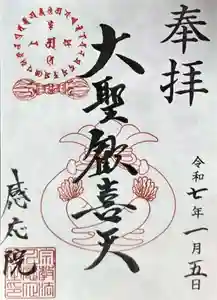 奉拝
大聖歓喜天
令和七年一月五日
感応院